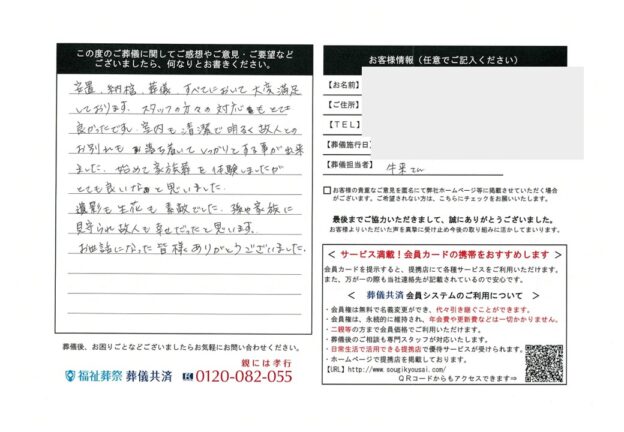 この度のご葬儀に関してご感想やご意見・ご要望など
ございましたら、何なりとお書きください。
安置、納棺、葬儀 すべてにおいて 大変満足
しております。スタッフの方々の対応もとても
良かったです。室内も清潔で明るく故人との
お別れも 落ち着いてしっかりとする事が出来
ました。始めて家族葬を体験しましたが
とても良いなと思いました。
遺影も生花も素敵でした。孫や家族に
見守られ故人も幸せだったと思います。
お世話になった皆様ありがとうございました。
葬儀後、お困りごとなどございましたらお気軽にお問い合わせください。
親には孝行
福祉葬祭 葬儀共済 0120-082-055
お客様情報(任意でご記入ください)
【お名前】
【ご住所】
【TEL】
【葬儀施行日】
【葬儀担当者】
□お客様の貴重なご意見を匿名にて弊社ホームページ等に掲載させていただく場合
がございます。ご希望されない方は、こちらにチェックをお願いいたします。
最後までご協力いただきまして、誠にありがとうございました。
お客様よりいただいた声を真摯に受け止め今後の取り組みに活かしてまいります。
< サービス満載!会員カードの携帯をおすすめします >
会員カードを提示すると、提携店にて各種サービスをご利用いただけます。
また、万が一の際も当社連絡先が記載されているので安心です。
< 葬儀共済 会員システムのご利用について >
・会員権は無料で名義変更ができ、代々引き継ぐことができます。
・会員権は、永続的に維持され、年会費や更新費などは一切かかりません。
・二親等の方まで会員価格でご利用いただけます。
・葬儀後のご相談も専門スタッフが対応いたします。
・日常生活で活用できる提携店で優待サービスが受けられます。
・ホームページで提携店を掲載しております。
【URL】http://www.sougikyousai.com/
QRコードからもアクセスできます⇒